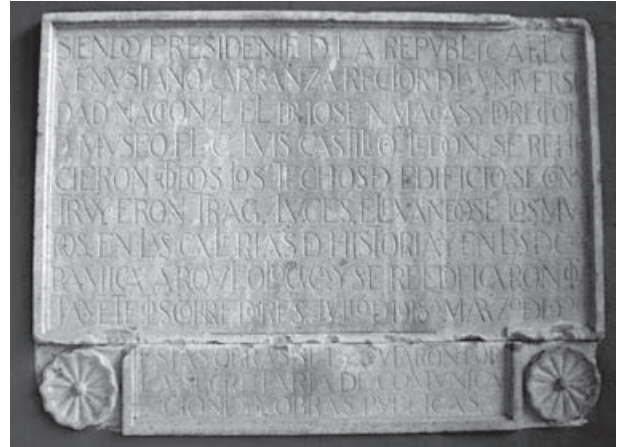 SIENDO PRESIDENTE D LA REPVBLICA EL C
VENVSTIANO CARRANZA RECTOR D LA VNIVERSI
DAD NACIONAL EL DR JOSE N. MACIAS Y DIRECTOR
D MVSEO EL C. LVIS CASTILLO LEDON, SE REHI
CIERON TODOS LOS TECHOS D EDIFICIO, SE CONS
TRVYERON TRAGALVCES, ELEVANDOSE LOS MV
ROS, EN LAS GALERIAS D HISTORIA Y EN LAS DE
ARQVEOLOGIA Y SE REEDIFICARON
CORREDORES. JVLIO D MARZO D
ESTAS OBRAS SE EJECVTARON POR
LA SECRETARIA DE COMVNICA
CIONES Y OBRAS PVBLICAS